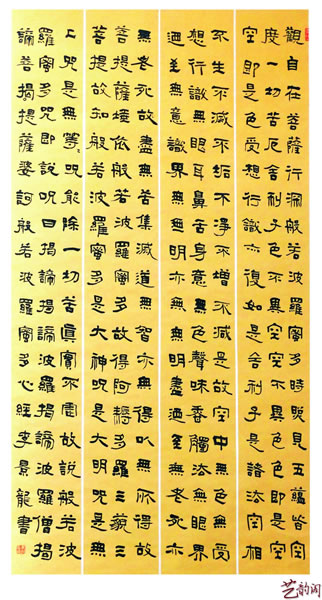 觀自在菩薩行深般若波羅蜜多時照見五蘊皆空
度一切苦厄舍利子色不異空空不異色色即是空
空即是色受想行識亦復如是舍利子是諸法空相
不生不滅不垢不淨不增不減是故空中無色無受
想行識無眼耳鼻舌身意無色聲味香觸法無眼界
迺至無意識界無無明亦無無明盡迺至無老死亦
無老死故盡無苦集滅道無智亦無得以無所得故
菩提薩埵依般若波羅蜜多故得阿耨多羅三藐三
菩提故知般若波羅蜜多是大神咒是大明咒是無
上咒是無等等咒能除一切苦真實不虛故說般若波
羅蜜多咒即說咒曰揭諦揭諦波羅揭諦波羅僧揭
諦菩揭提薩婆訶般若波羅蜜多心經李景能書
艺韵阁